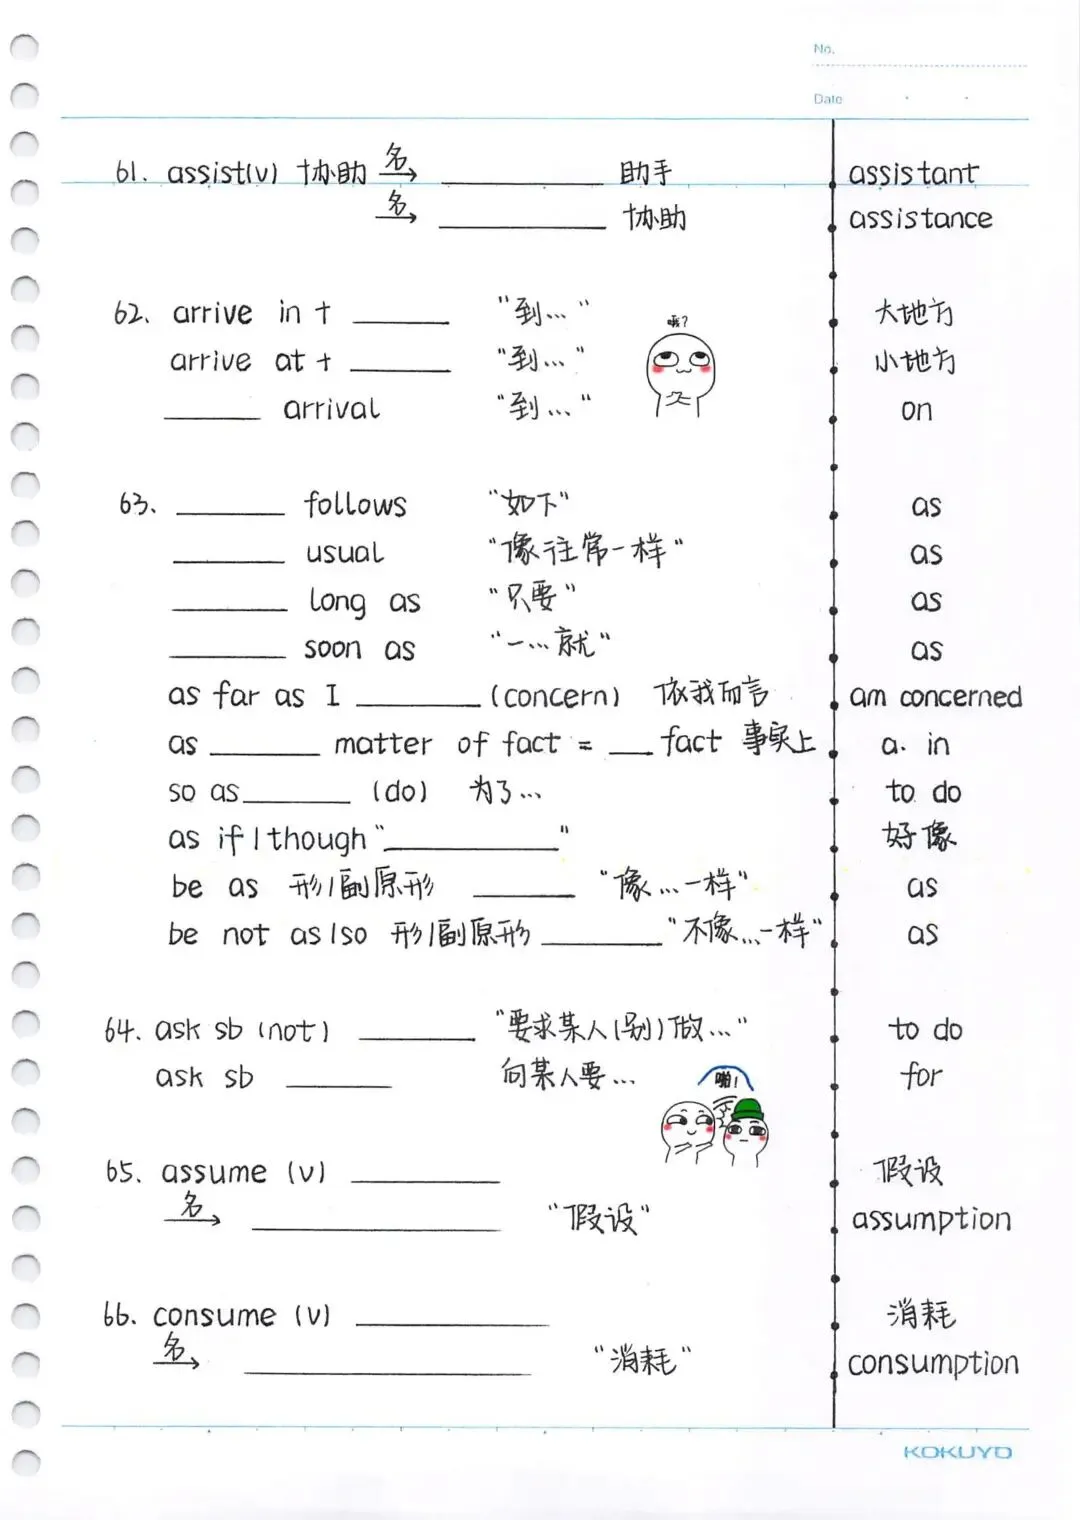 No.
Date
61. assist(v) 协助 名→ ________ 助手 assistant
名→ ________ 协助 assistance
62. arrive in + ______ "到..." 大地方
哦?
arrive at + ______ "到..." 小地方
______ arrival "到..." on
63. ______ follows "如下" as
______ usual "像往常一样" as
______ long as "只要" as
______ soon as "一...就" as
as far as I ______ (concern) 依我而言 am concerned
as ______ matter of fact = ___ fact 事实上 a. in
so as ______ (do) 为了... to do
as if/though "________" 好像
be as 形/副原形 ______ "像...一样" as
be not as/so 形/副原形 ______ "不像...一样" as
64. ask sb (not) ______ "要求某人(别)做..." to do
ask sb ______ 向某人要... for
啪!
65. assume (v) ________ 假设
名→ ________ "假设" assumption
66. consume (v) ________ 消耗
名→ ________ "消耗" consumption
KOKUYO